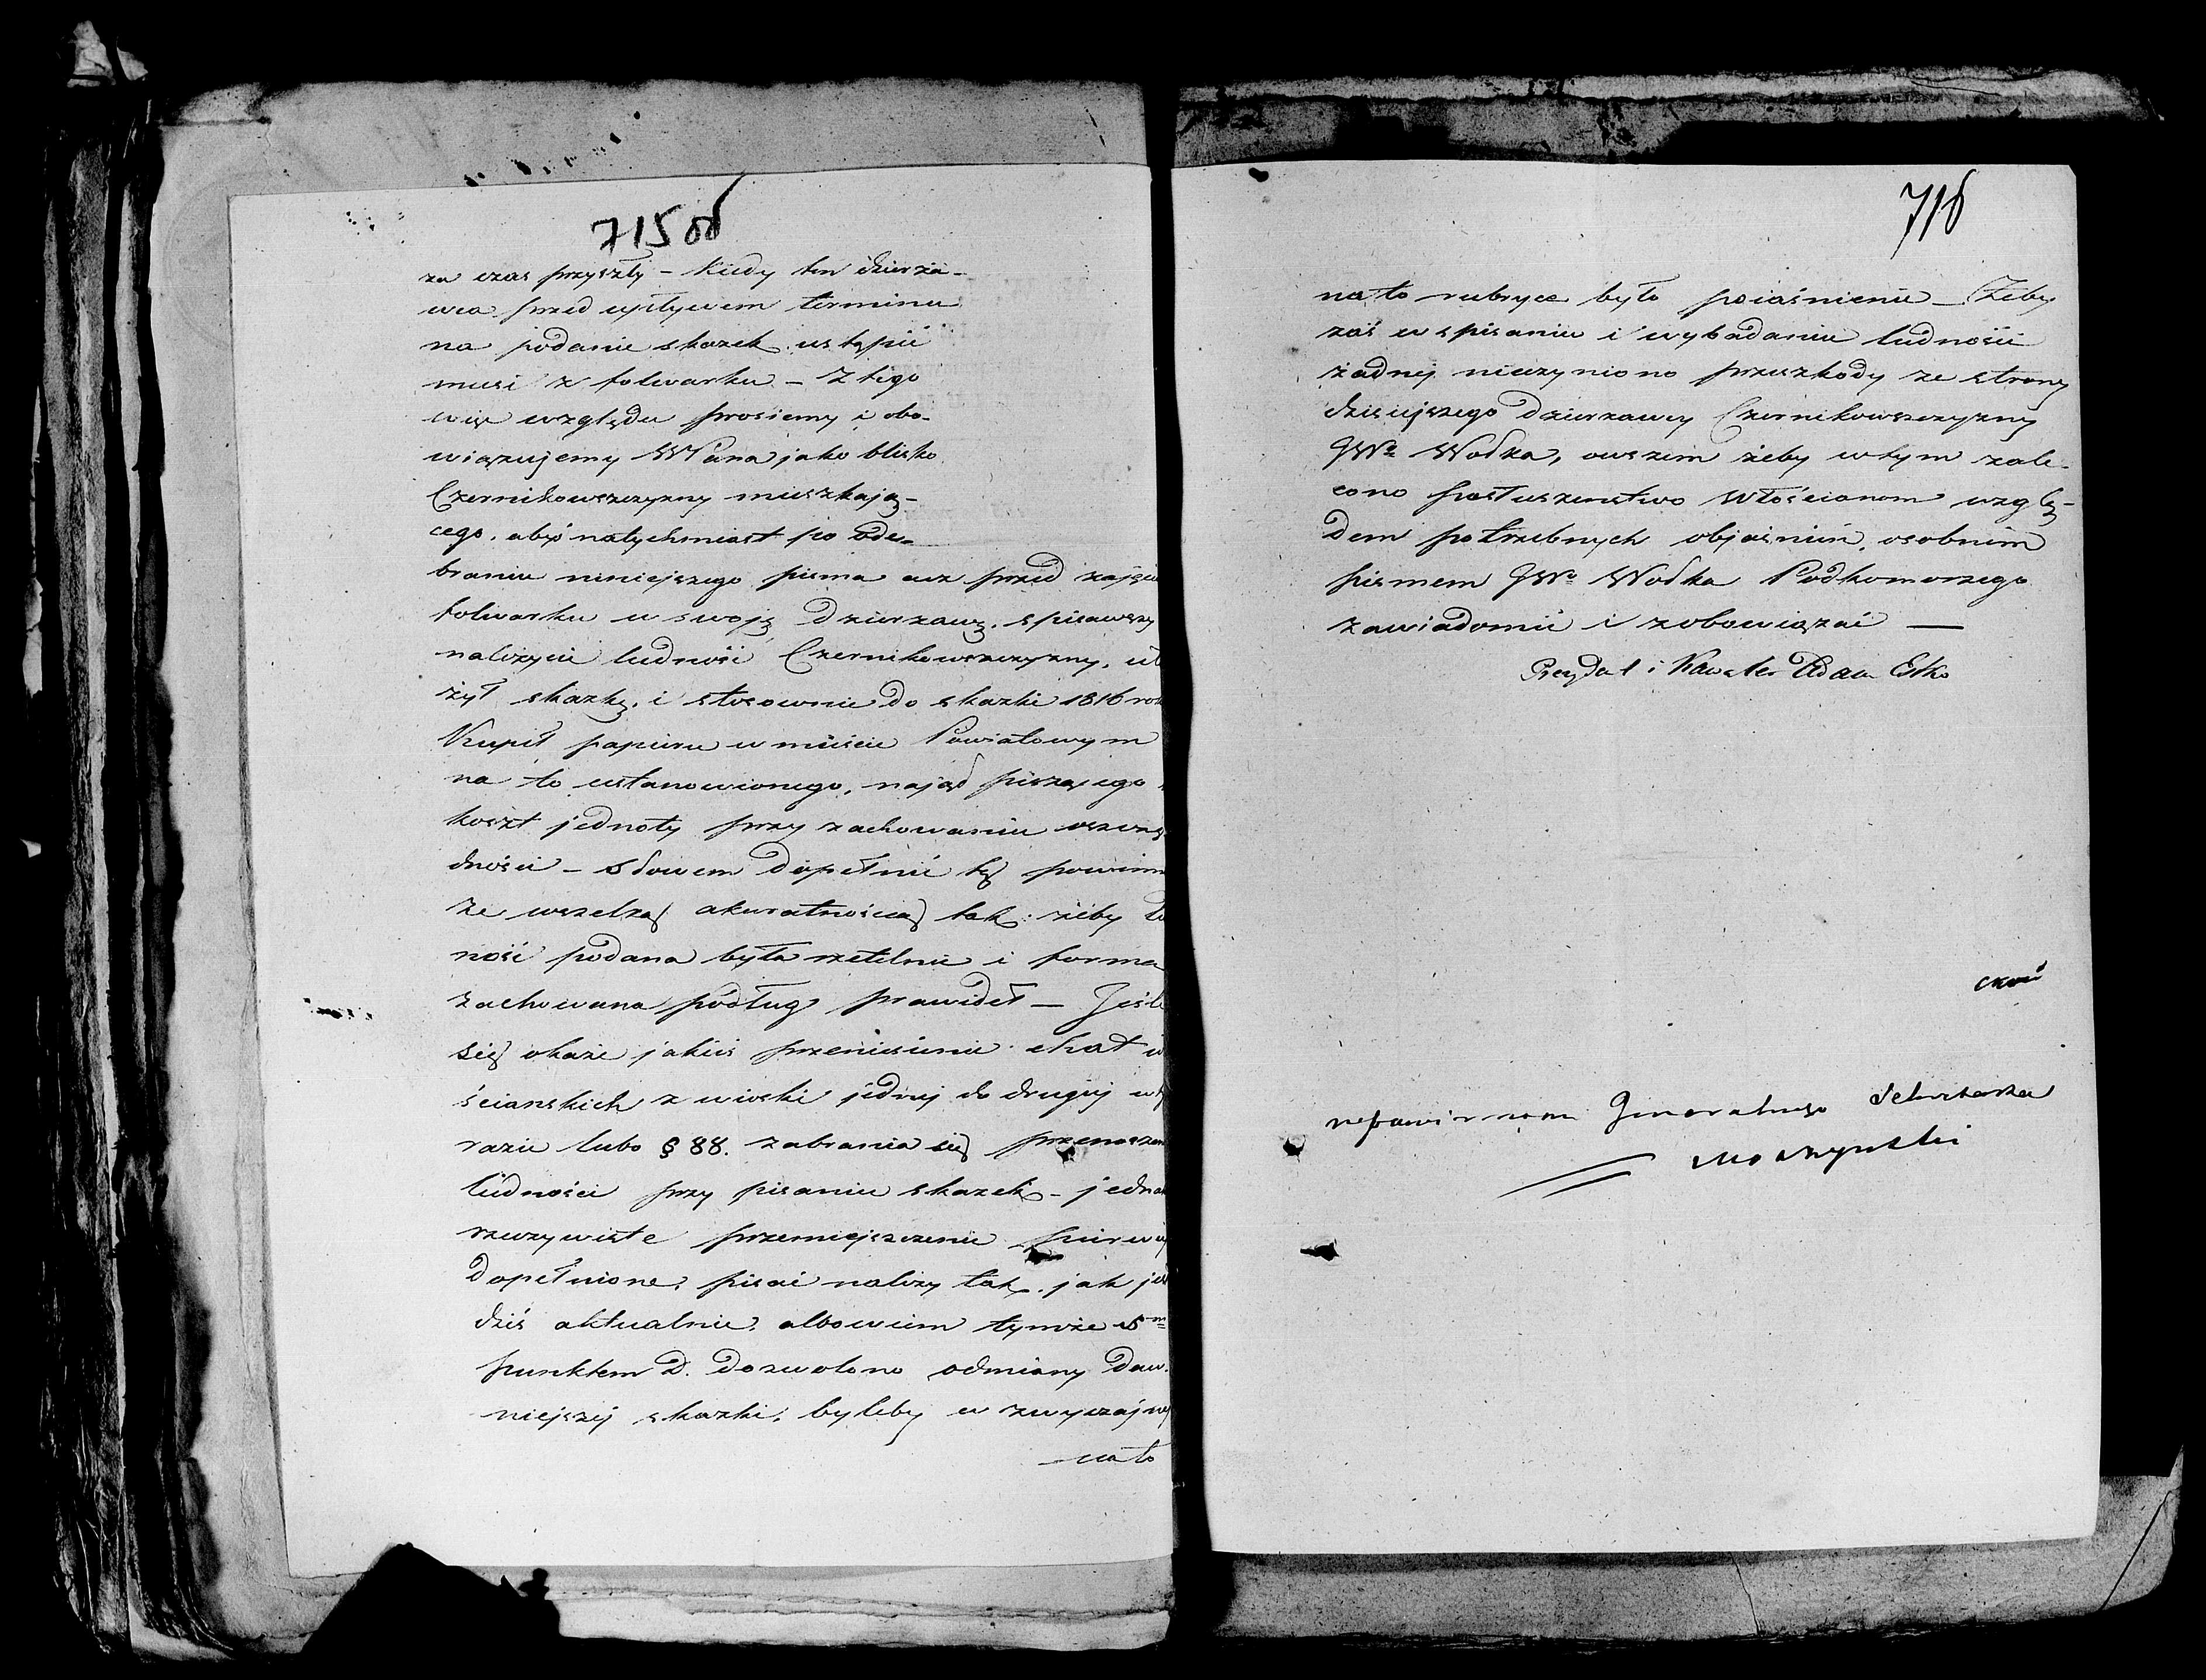 715 об
za czas przyszły – Kiedy ten dzierża-
wca przed upływem terminu
na podanie skazek ustąpić
musi z folwarku – Z tego
więc względu prosiemy i obo-
wiązujemy WPana jako blisko
Czernikowszczyzny mieszkają-
cego, abyś natychmiast po ode-
braniu niniejszego pisma a przed zajęci
folwarku w swoję dzierzawę, spisawszy
należycie ludność Czernikowszczyzny, uło
żył skazkę, i stosownie do skazki 1816 rok
Kupił papieru w mieście Powiatowym
na to ustanowionego, najął piszącego
koszt jednoty przy zachowaniu oszczę
dności – Słowem dopełnić tę powinn
ze wszelką akuratnością tak: żeby lu
ność podana była rzetelnie i forma
zachowana podług prawideł – Jeśli
się okaże jakieś przeniesienie chat w
ściańskich z wioski jednej do drugiej w t
razie lubo § 88. zabrania się przenoszen
ludności przy pisaniu skazek – jednak
rzeczywiste przemiejszczenie pierwiej
dopełnione, pisać należy tak, jak jes
dziś aktualnie, albowiem tymże 5m
punktem D. dozwolono odmiany daw-
niejszej skazki, byleby w zwyczajnej
na to
716
na to rubryce było poiaśnienie – Żeby
zaś w spisaniu i wybadaniu ludności
żadnej nieczyniono przeszkody ze strony
dzisiejszego dzierzawcy Czernikowszczyzny
JWo Wodka, owszem żeby w tym zale-
cono posłuszeństwo Włościanom wzglę-
dem potrzebnych objaśnień, osobnem
pismem JWo Wodka Podkomorzego
zawiadomić i zobowiązać —
Prezydał i Kawaler Adam Esko
Generalnego Sekretarza
Moszyński